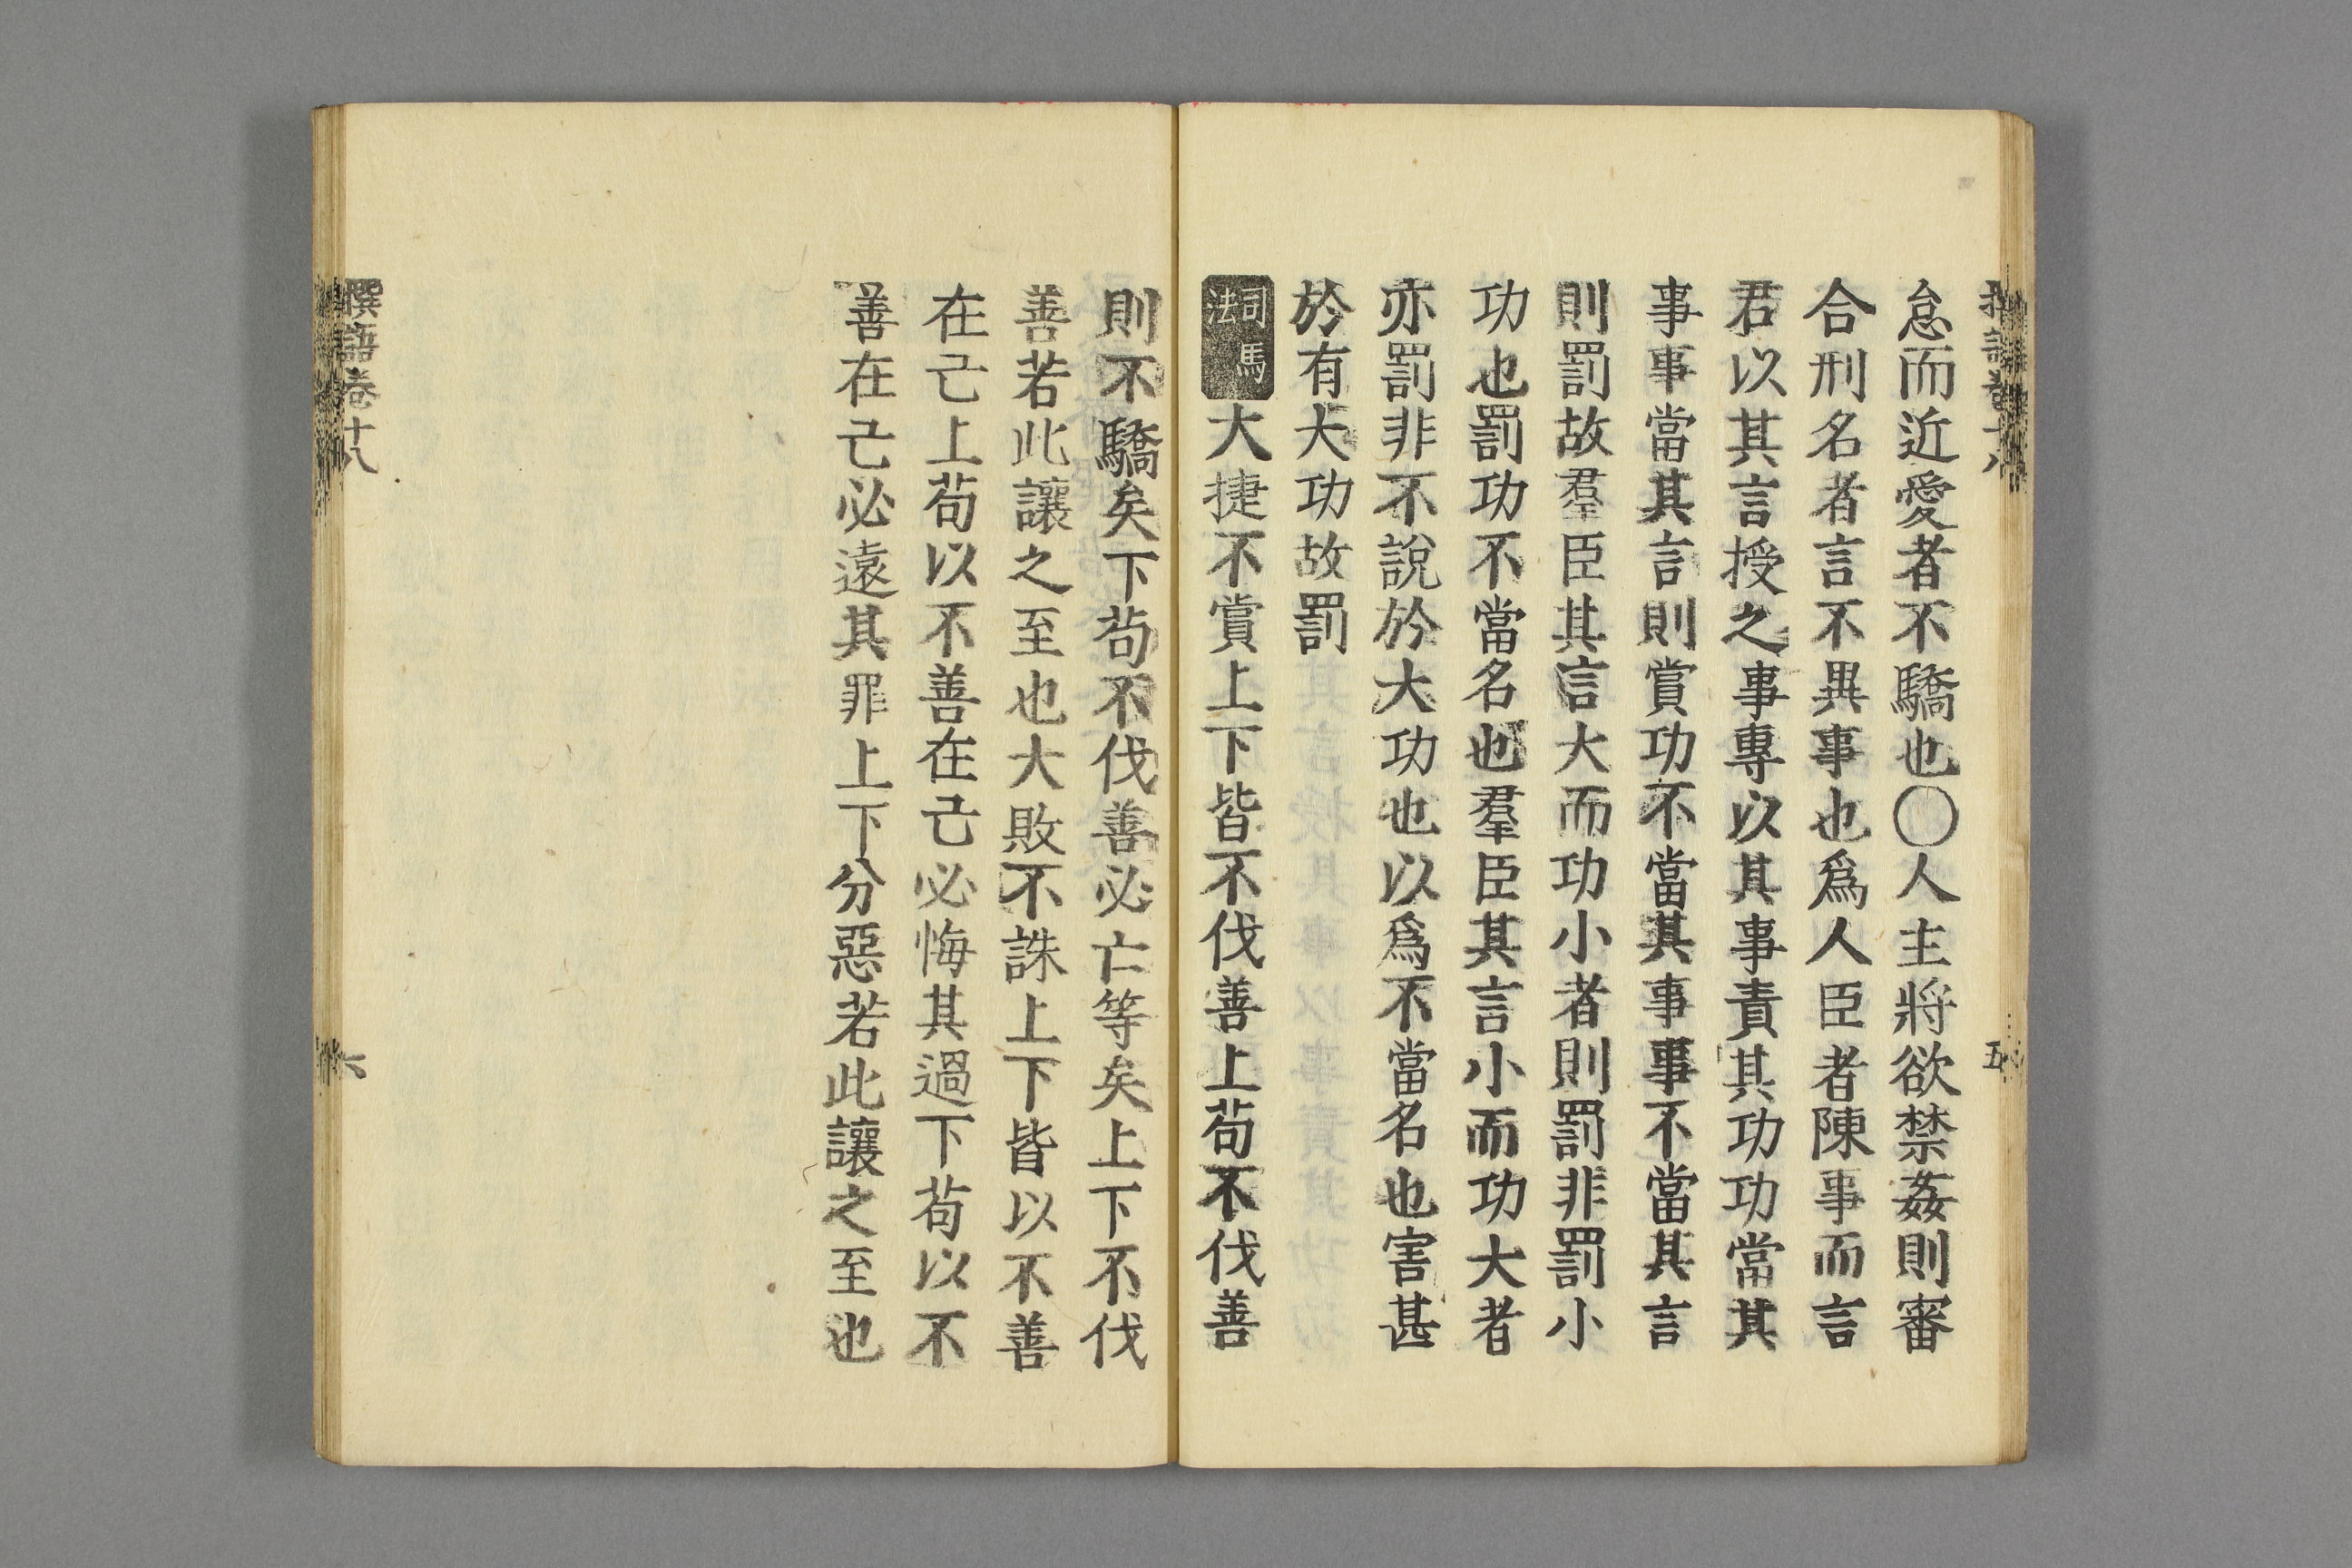 怠而近愛者不驕也〇人主將欲禁姦則審
合刑名者言不異事也爲人臣者陳事而言
君以其言授之事專以其事責其功功當其
事事當其言則賞功不當其事事不當其言
則罰故羣臣其言大而功小者則罰非罰小
功也罰功不當名也羣臣其言小而功大者
亦罰非不說於大功也以爲不當名也害甚
於有大功故罰
司馬法大捷不賞上下皆不伐善上苟不伐善
則不驕矣下苟不伐善必亡等矣上下不伐
善若此讓之至也大敗不誅上下皆以不善
在己上苟以不善在己必悔其過下苟以不
善在己必遠其罪上下分惡若此讓之至也
卷十八
六